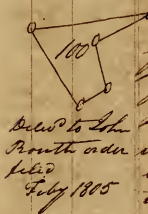 100
Deliv^d to John
Routh order
filed
Feby 1805